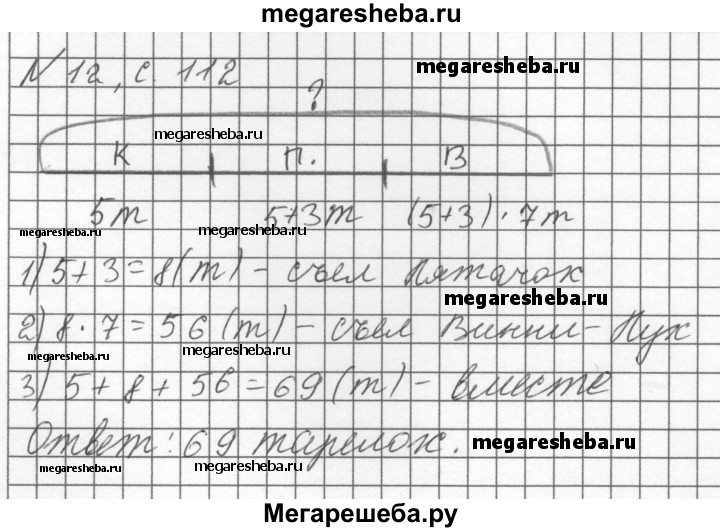 megaresheba.ru
№ 1а, с. 112 megaresheba.ru
?
megaresheba.ru
К П. В
5т 5+3т (5+3)·7т
megaresheba.ru megaresheba.ru
1) 5+3=8(т) - съел Пятачок
megaresheba.ru
2) 8·7=56(т) - съел Винни-Пух
megaresheba.ru megaresheba.ru
3) 5+8+56=69(т) - вместе
Ответ: 69 тарелок. megaresheba.ru
megaresheba.ru megaresheba.ru
Мегарешеба.ру